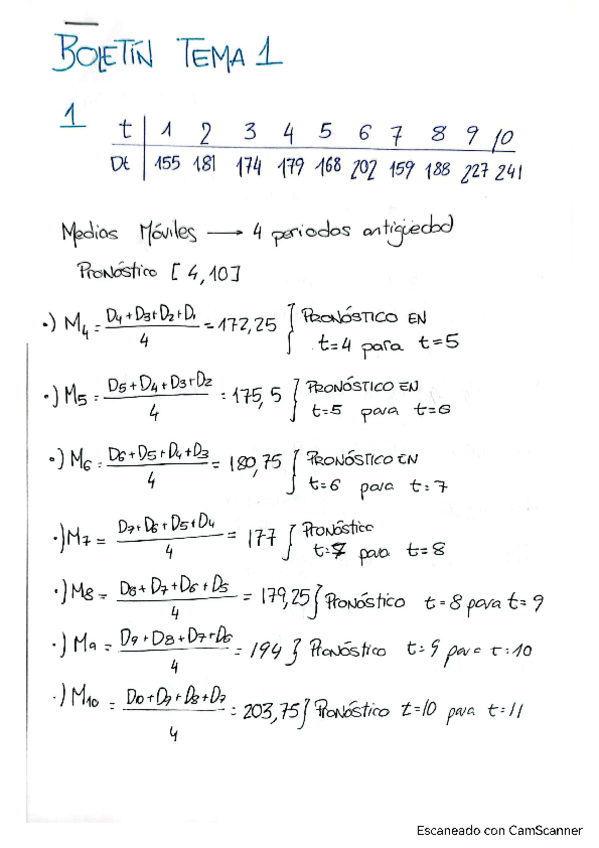 BOLETÍN TEMA 1
1
t 1 2 3 4 5 6 7 8 9 10
Dt 155 181 174 179 168 202 159 188 227 241
Medias Móviles → 4 periodos antigüedad
Pronóstico [4,10]
·) M4 = D4+D3+D2+D1 / 4 = 172,25 } PRONÓSTICO EN
t=4 para t=5
·) M5 = D5+D4+D3+D2 / 4 = 175,5 } PRONÓSTICO EN
t=5 para t=6
·) M6 = D6+D5+D4+D3 / 4 = 180,75 } PRONÓSTICO EN
t=6 para t=7
·) M7 = D7+D6+D5+D4 / 4 = 177 } Pronóstico
t=7 para t=8
·) M8 = D8+D7+D6+D5 / 4 = 179,25 } Pronóstico t=8 para t=9
·) M9 = D9+D8+D7+D6 / 4 = 194 } Pronóstico t=9 para t=10
·) M10 = D10+D9+D8+D7 / 4 = 203,75 } Pronóstico t=10 para t=11
Escaneado con CamScanner